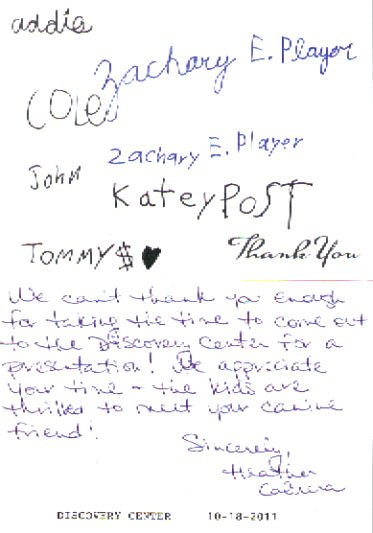 addie
Zachary E. Player
Cole
Zachary E. Player
John
Katey Post
TOMMY $ ♥
Thank You
We can't thank you enough
for taking the time to come out
to the Discovery Center for a
presentation! We appriciate
your time - the kids are
thrilled to meet your canine
friend!
Sincerely,
Heather
DISCOVERY CENTER 10-18-2011